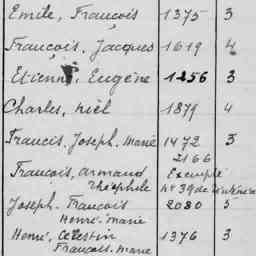 Emile, François 1375 3
François, Jacques 1619 4
Etienne, Eugène 1256 3
Charles, Noël 1879 4
Francis, Joseph, Marie 1472 3
2166
François, Armand Exempté
Théophile N° 39 de
Joseph, François 2080 5
Henri, Marie
Henri, Célestin 1376 3
François, Marie